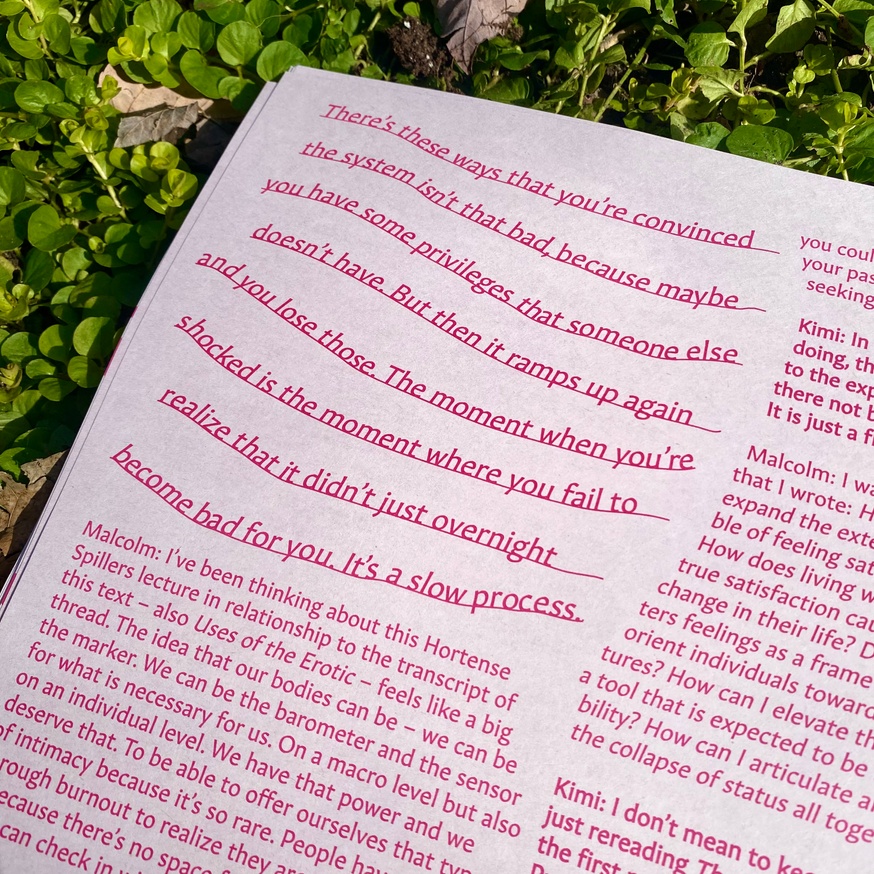 There's these ways that you're convinced
the system isn't that bad, because maybe
you have some privileges that someone else
doesn't have. But then it ramps up again
and you lose those. The moment when you're
shocked is the moment where you fail to
realize that it didn't just overnight
become bad for you. It's a slow process.
Malcolm: I've been thinking about this Hortense
Spillers lecture in relationship to the transcript of
this text – also Uses of the Erotic – feels like a big
thread. The idea that our bodies can be – we can be
the marker. We can be the barometer and the sensor
for what is necessary for us. On a macro level but also
on an individual level. We have that power and we
deserve that. To be able to offer ourselves that
of intimacy because it's so rare. People
burnout to realize they
there's no
can check in
you
your
seeking
Kimi: In
doing,
to the
there not
It is just a
Malcolm: I
that I wrote:
expand the
ble of feeling
How does living
true satisfaction
change in their life?
ters feelings as a frame
orient individuals
tures? How can I elevate
a tool that is expected to be
bility? How can I articulate
the collapse of status all
Kimi: I don't mean to
just rereading
the first